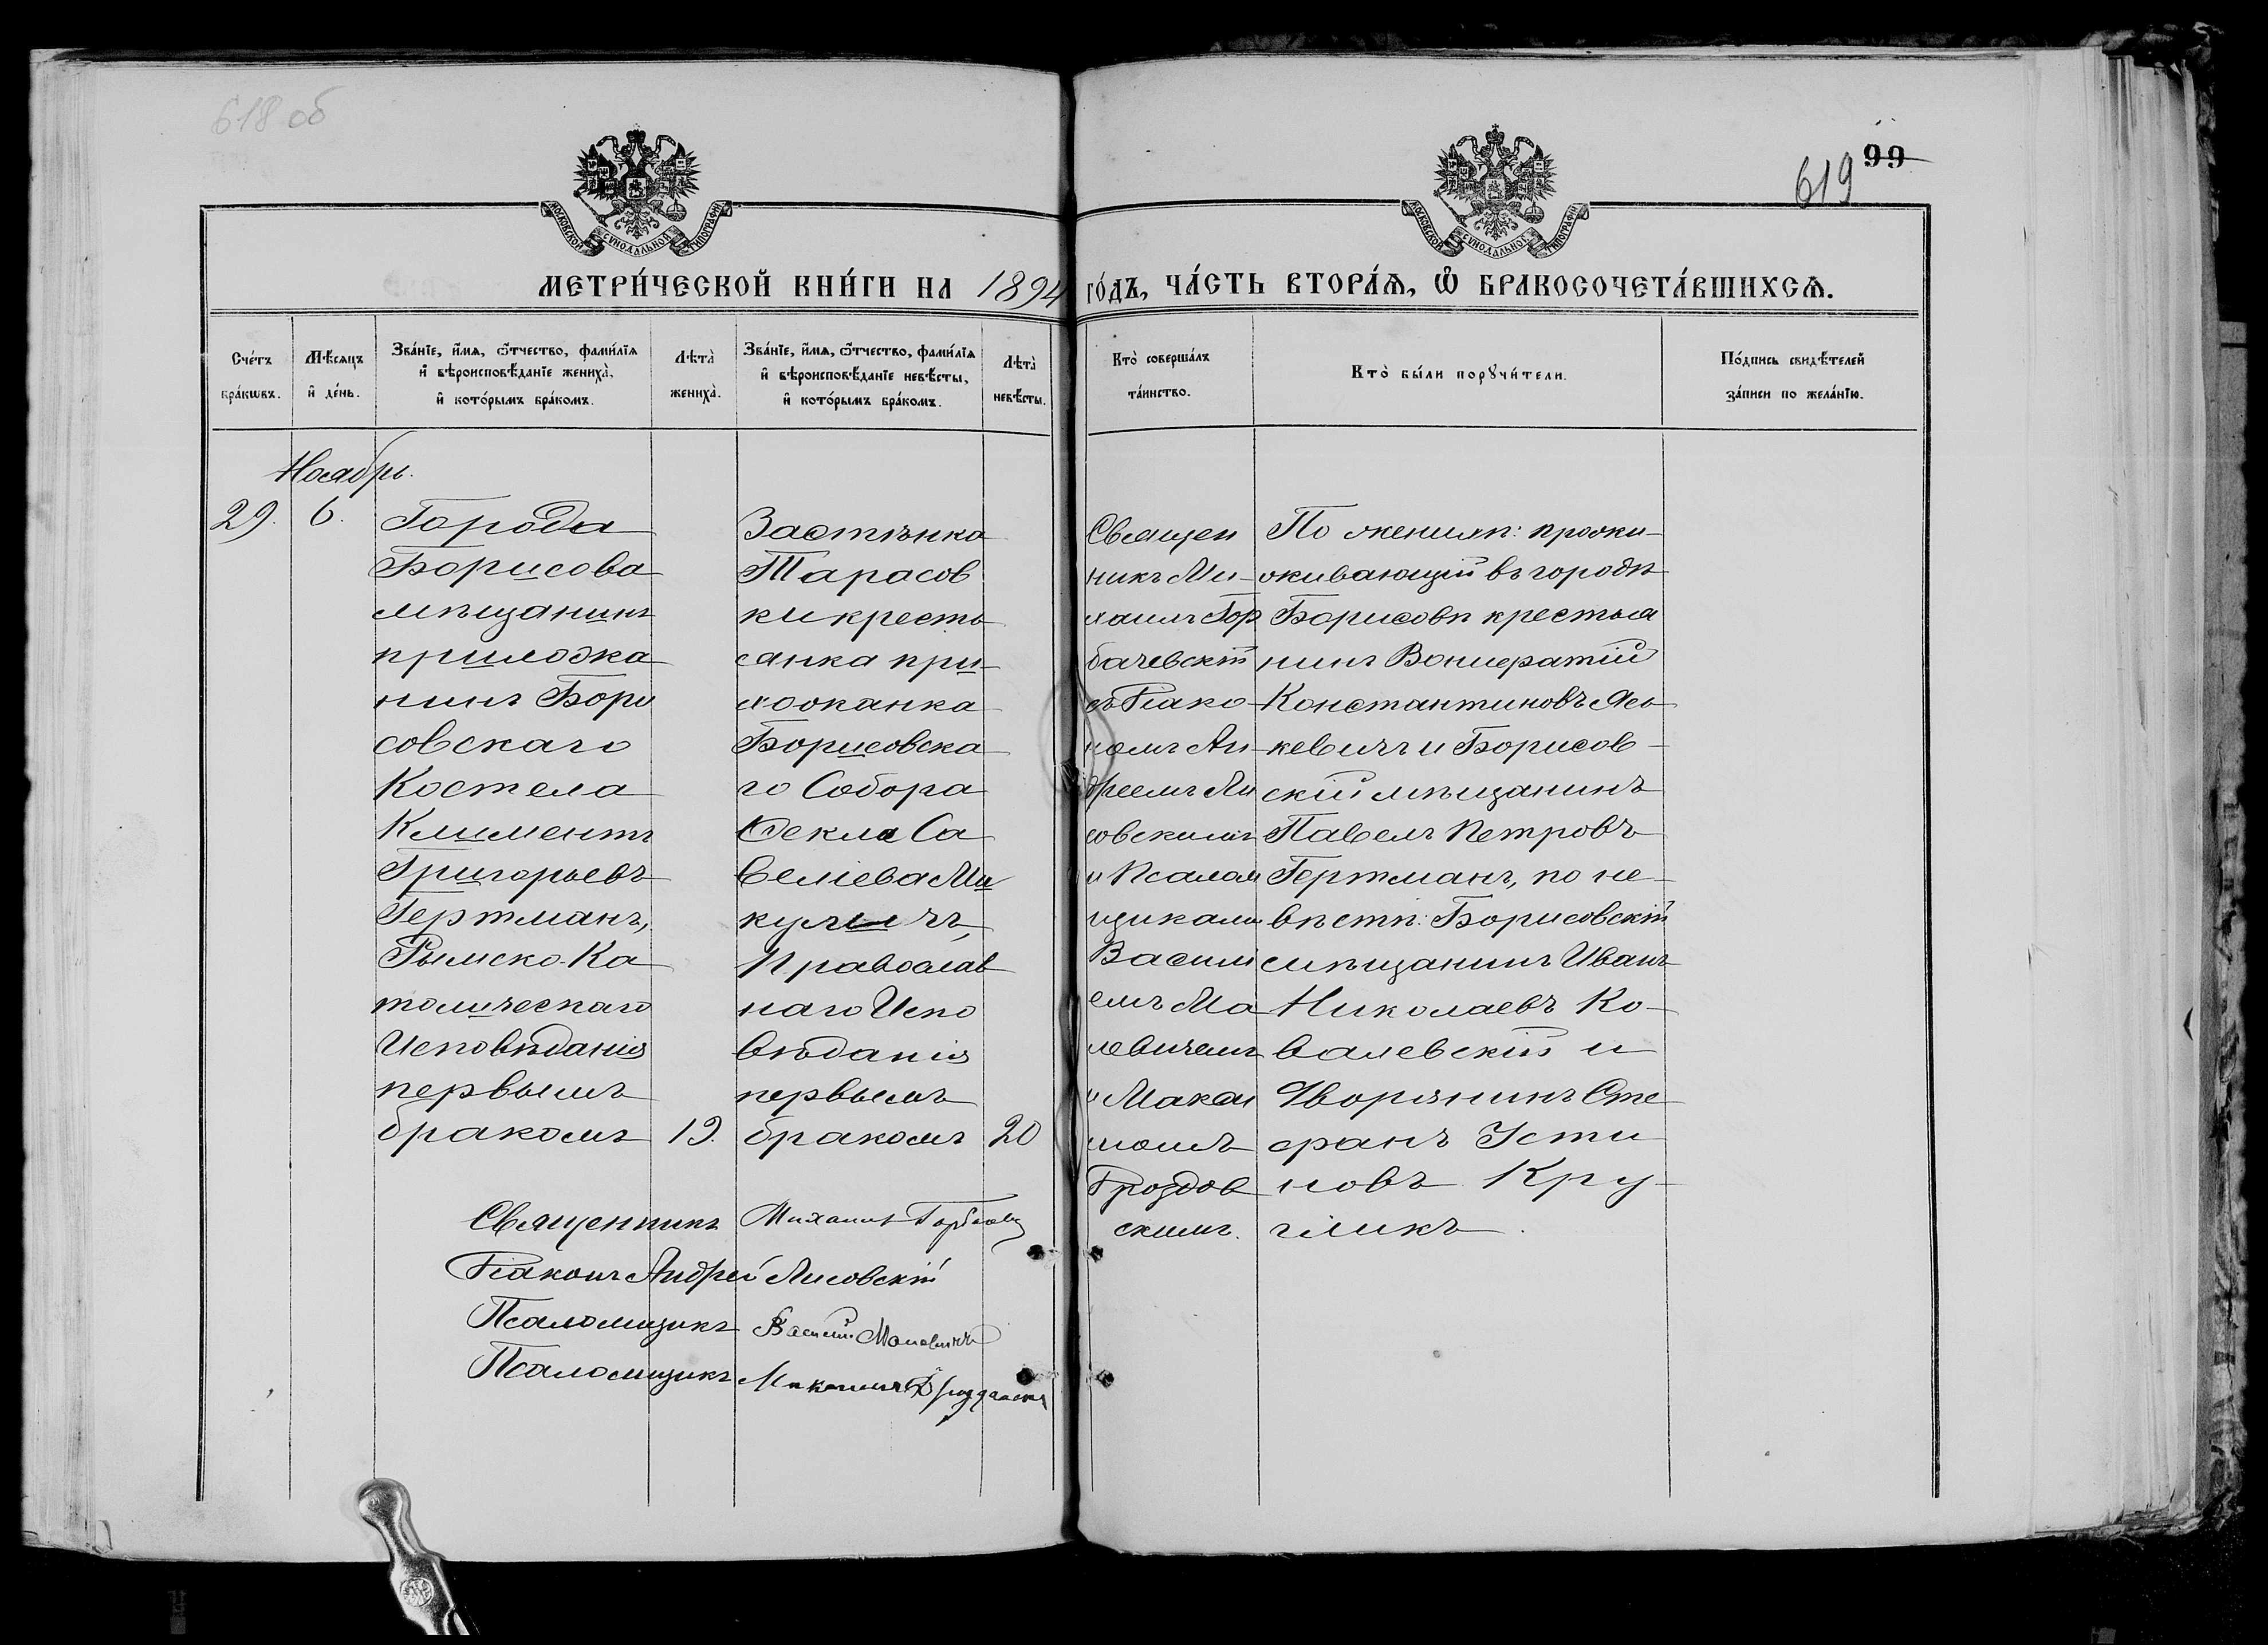 618 об
99
619
МОСКОВСКОЙ СѴНОДАЛЬНОЙ ТИПОГРАФІИ
МОСКОВСКОЙ СѴНОДАЛЬНОЙ ТИПОГРАФІИ
МЕТРИ́ЧЕСКОЙ КНИ́ГИ НА 1894 ГО́ДЪ, ЧА́СТЬ ВТОРА́Ѧ, Ѽ БРАКОСОЧЕТА́ВШИХСѦ.
Сче́тъ
бра́кѡвъ.
Мѣ́сяцъ
и҆ де́нь.
Зва́нїе, и҆́мѧ, ѻ҆́тчество, фами́лїѧ
и҆ вѣроисповѣ́данїе жениха̀,
и҆ кото́рымъ бра́комъ.
Лѣта̀
жениха̀.
Зва́нїе, и҆́мѧ, ѻ҆́тчество, фами́лїѧ
и҆ вѣроисповѣ́данїе невѣ́сты,
и҆ кото́рымъ бра́комъ.
Лѣта̀
невѣ́сты.
Кто̀ соверша́лъ
та́инство.
Кто̀ бы́ли порꙋчи́тели.
По́дпись свидѣ́телей
за́писи по жела́нїю.
Ноябрь.
29. 6.
Города
Борисова
мѣщанинъ
прихожа
нинъ Бори
совскаго
Костела
Климентъ
Григорьевъ
Гертманъ,
Римско-Ка
толическаго
Исповѣданія
первымъ
бракомъ 19.
Застѣнка
Тарасов
ки кресть
янка при-
хожанка
Борисовска
го Собора
Ѳекла Са
веліева Ми
куличъ,
Православ
наго Испо
вѣданія
первымъ
бракомъ 20
Священ
никъ Ми-
хаилъ Гор
бачевскій
съ Діако-
номъ Ан-
дреемъ Ли
совскимъ
и Псалом
щиками
Васили
емъ Ма
левичемъ
и Макси
момъ
Дроздов
скимъ.
По женихѣ: прожи-
живающій въ городѣ
Борисовѣ крестья
нинъ Вонифатій
Константиновъ Ась-
кевичъ и Борисов-
скій мѣщанинъ
Павелъ Петровъ
Гертманъ, по не-
вѣстѣ: Борисовскій
мѣщанинъ Иванъ
Николаевъ Ко-
валевскій и
Дворянинъ Сте
фанъ Усти
новъ Кру-
гликъ.
Священникъ Михаилъ
Діаконъ Андрей Лисовскій
Псаломщикъ Василій Малевичъ
Псаломщикъ Максимъ